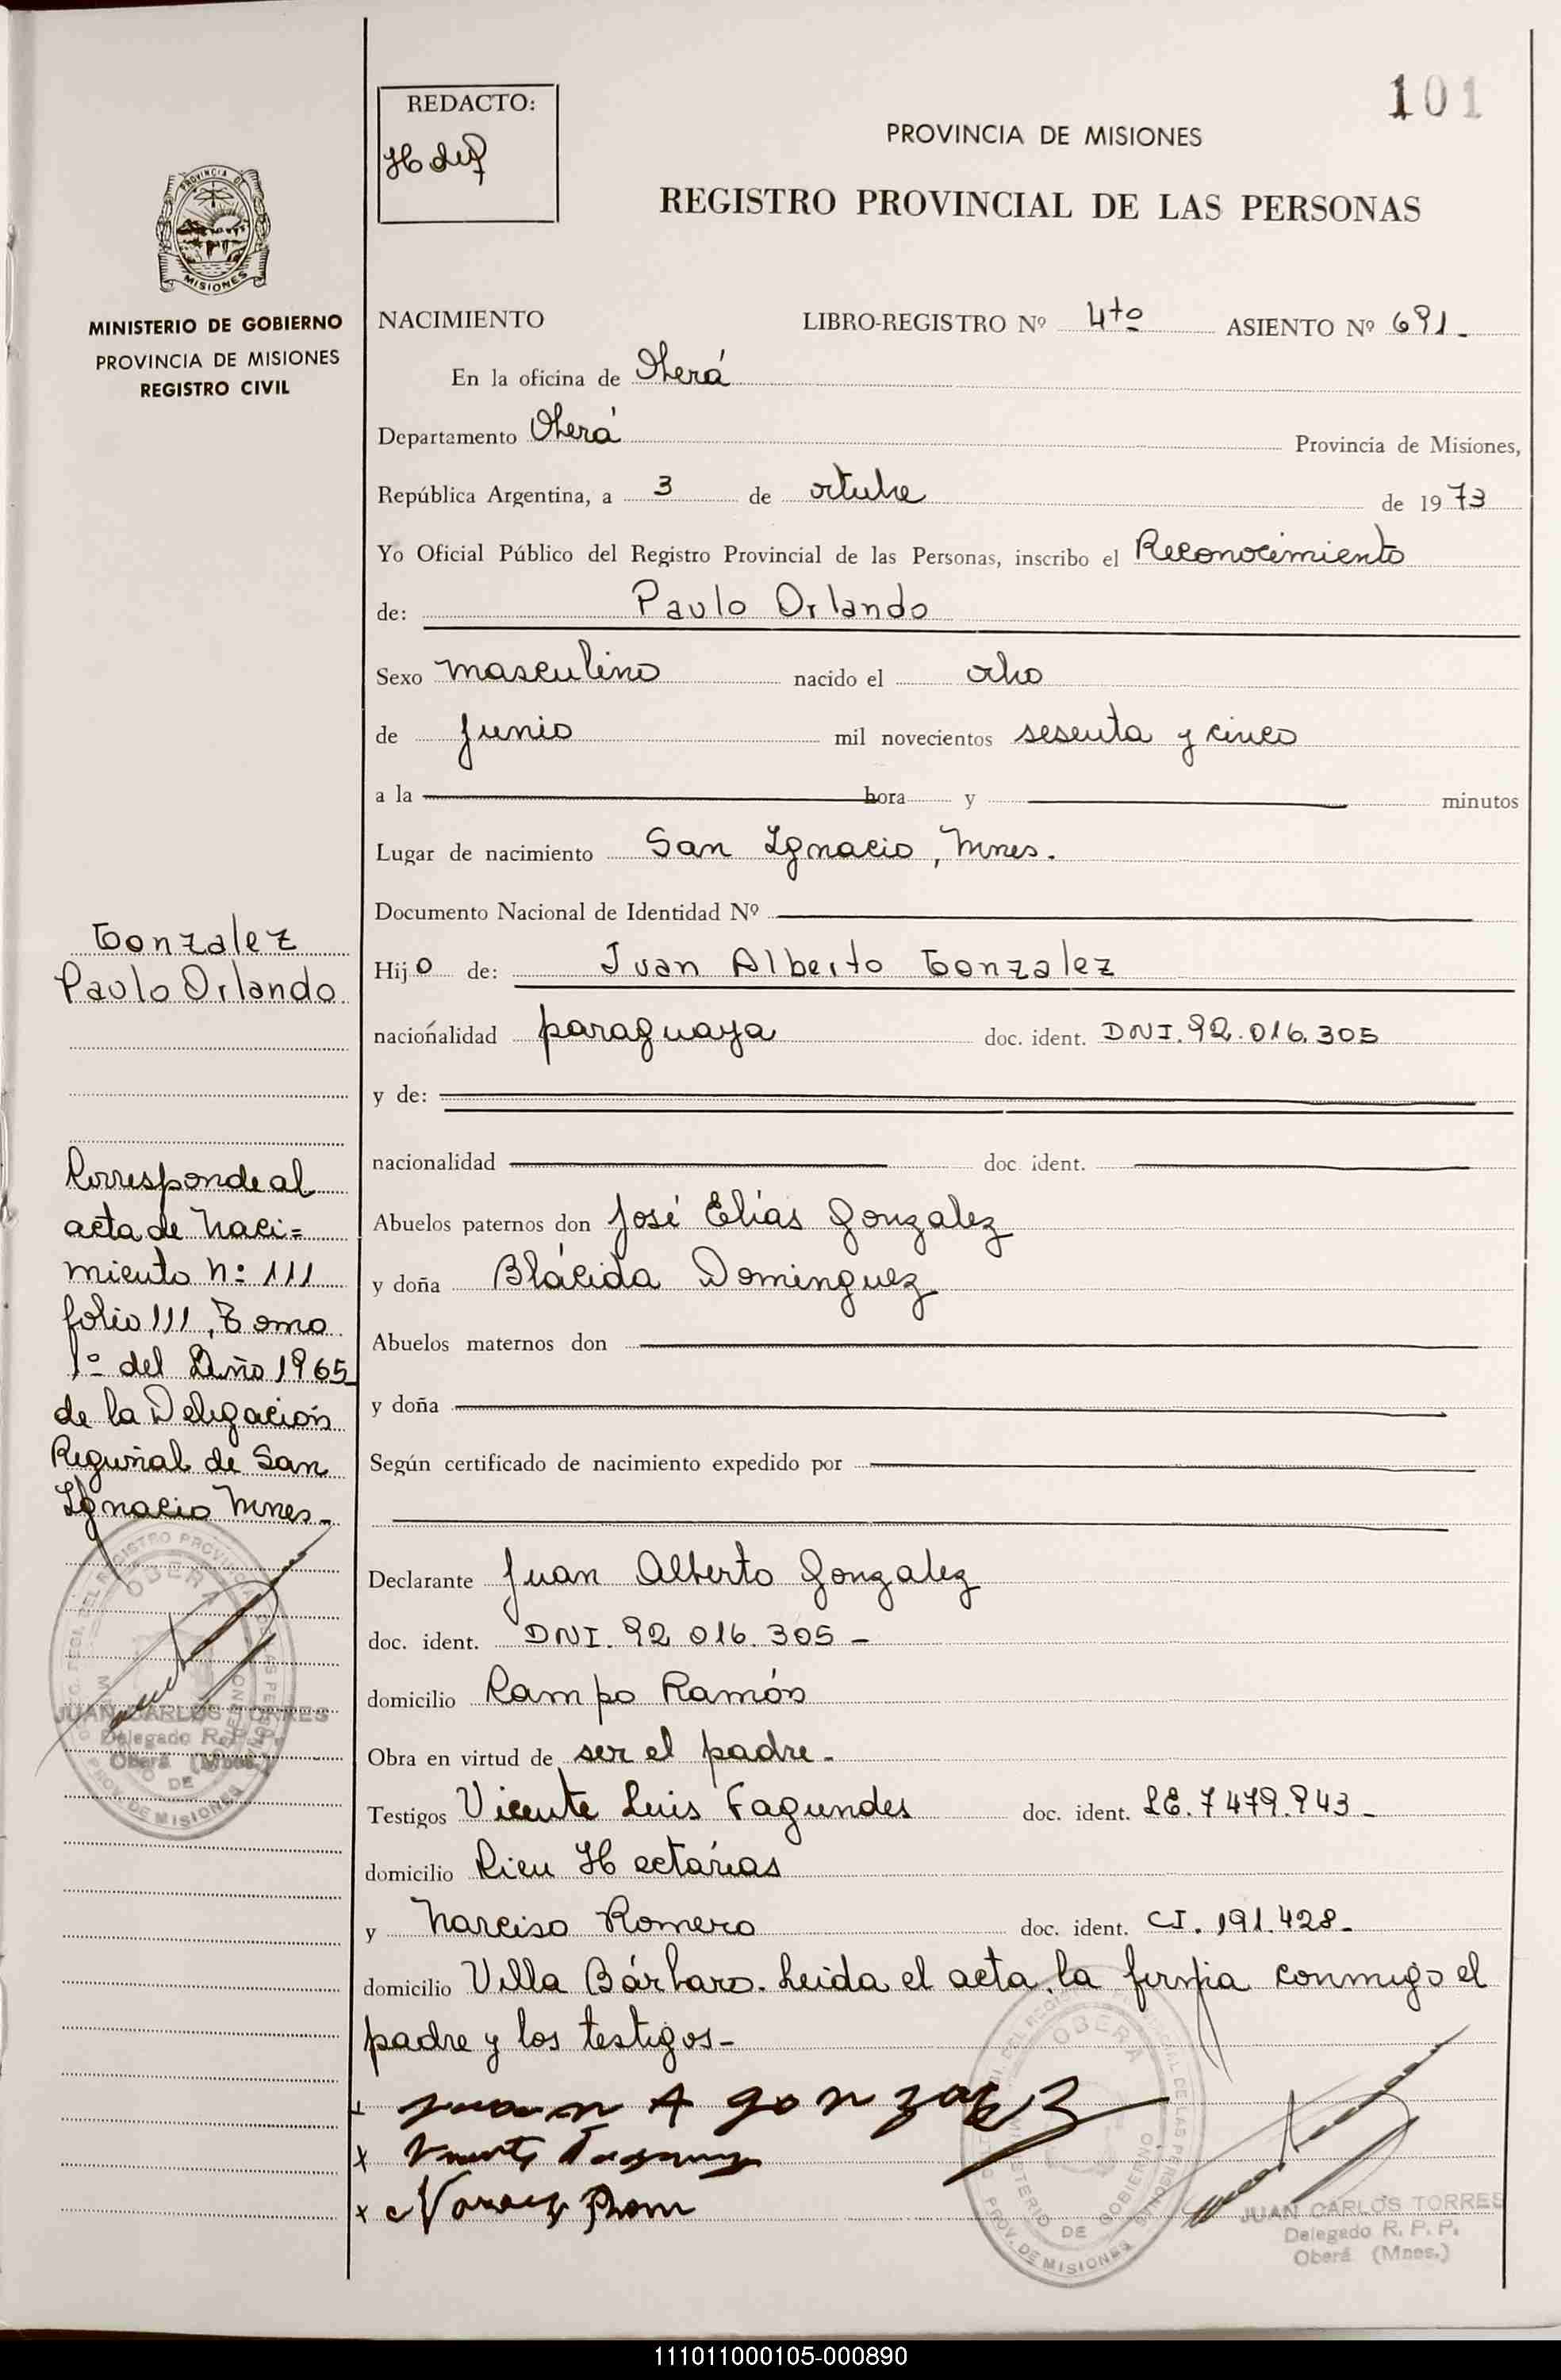 101
REDACTO:
PROVINCIA DE MISIONES
REGISTRO PROVINCIAL DE LAS PERSONAS
PROVINCIA DE
MISIONES
MINISTERIO DE GOBIERNO
PROVINCIA DE MISIONES
REGISTRO CIVIL
NACIMIENTO LIBRO-REGISTRO Nº 4to ASIENTO Nº 691.
En la oficina de Oberá
Departamento Oberá Provincia de Misiones,
República Argentina, a 3 de octubre de 1973
Yo Oficial Público del Registro Provincial de las Personas, inscribo el Reconocimiento
de: Paulo Orlando
Sexo masculino nacido el ocho
de junio mil novecientos sesenta y cinco
a la hora y minutos
Lugar de nacimiento San Ignacio, Mnes.
Documento Nacional de Identidad Nº
Gonzalez
Paulo Orlando
Hijo de: Juan Alberto Gonzalez
nacionalidad paraguaya doc. ident. DNI. 92.016.305
y de:
nacionalidad doc. ident.
Corresponde al
acta de Naci=
miento Nº 111
folio 111, Tomo
1º del Año 1965
de la Delegación
Regional de San
Ignacio Mnes.
Abuelos paternos don José Elías Gonzalez
y doña Blácida Dominguez
Abuelos maternos don
y doña
Según certificado de nacimiento expedido por
Declarante Juan Alberto Gonzalez
doc. ident. DNI. 92 016. 305 -
domicilio Campo Ramón
Obra en virtud de ser el padre.
Testigos Vicente Luis Fagundes doc. ident. LE. 7 479.943 -
domicilio Cien Hectáreas
y Narciso Romero doc. ident. CI. 191.428.
domicilio Villa Bárbaro. Leida el acta, la firma conmigo el
padre y los testigos-
OBERA
JUAN CARLOS TORRES
Delegado R. P. P.
Oberá (Mnes.)
PROV. DE MISIONES
x Juan A gonzalez
x
x
OBERA
MINISTERIO DE GOBIERNO
PROV. DE MISIONES
JUAN CARLOS TORRES
Delegado R. P. P.
Oberá (Mnes.)
111011000105-000890